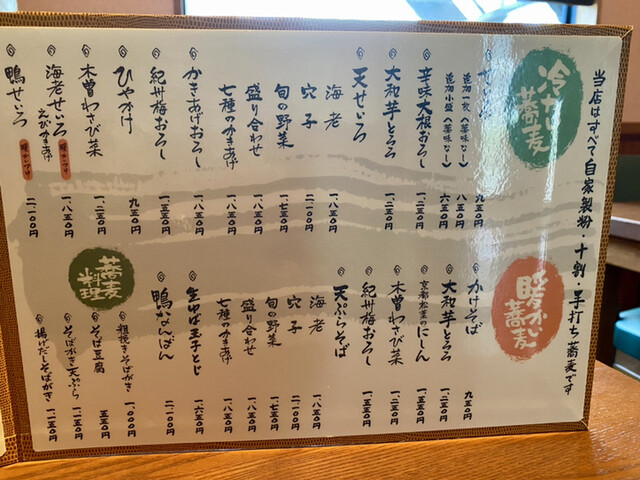 当店はすべて自家製粉・十割・手打ち蕎麦です
冷たい蕎麦
せいろ 九五〇円
追加一枚(薬味なし) 八五〇円
追加小盛(薬味なし) 六五〇円
辛味大根おろし 一、二五〇円
大和芋とろろ 一、二五〇円
天せいろ
海老 一、八五〇円
穴子 二、一〇〇円
旬の野菜 一、七五〇円
盛り合わせ 一、八五〇円
七種のかきあげ 一、八五〇円
かきあげおろし 一、八五〇円
紀州梅おろし 一、三五〇円
ひやかけ 九五〇円
木曽わさび菜 一、二五〇円
海老せいろ えびかきあげ 一、八五〇円
鴨せいろ 二、一〇〇円
暖かい蕎麦
かけそば 九五〇円
大和芋とろろ 一、二五〇円
京都松葉のにしん 一、五五〇円
木曽わさび菜 一、二五〇円
紀州梅おろし 一、三五〇円
天ぷらそば
海老 一、八五〇円
穴子 二、一〇〇円
旬の野菜 一、七五〇円
盛り合わせ 一、八五〇円
七種のかきあげ 一、八五〇円
生ゆば玉子とじ 一、六五〇円
鴨なんばん 二、一〇〇円
蕎麦料理
粗挽きそばがき 一、〇〇〇円
そば豆腐 五五〇円
そばがき天ぷら 一、一五〇円
揚げだしそばがき 一、一五〇円